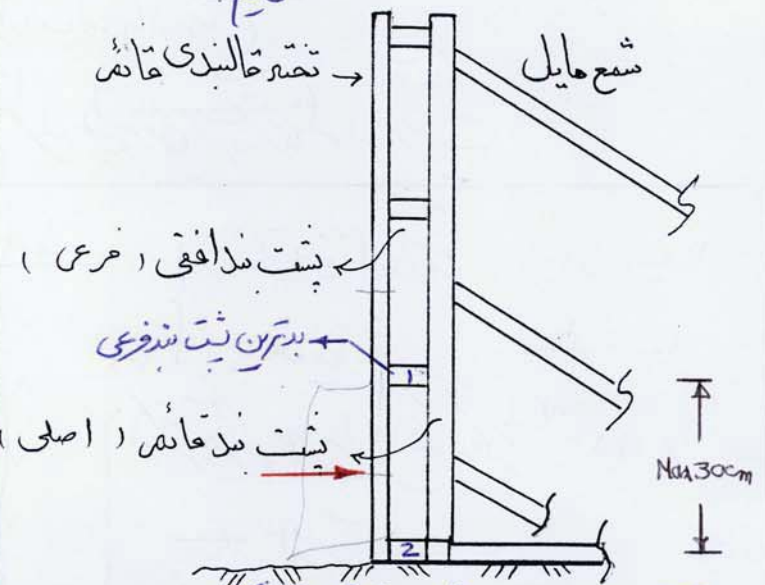 تخته قالبندی قائم
شمع مایل
پشت بند افقی ( فرعی )
بدترین پشت بند فرعی
1
پشت بند قائم ( اصلی )
30cm
2